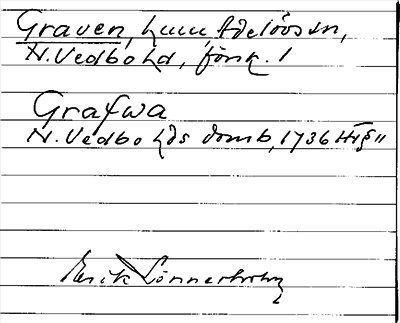 Graven, hmn, Adelövs sn,
N. Vedbo hd, försk. 1
Grafwa
N. Vedbo hds domb, 1736 Ht § 11
Erik Lönnerholm